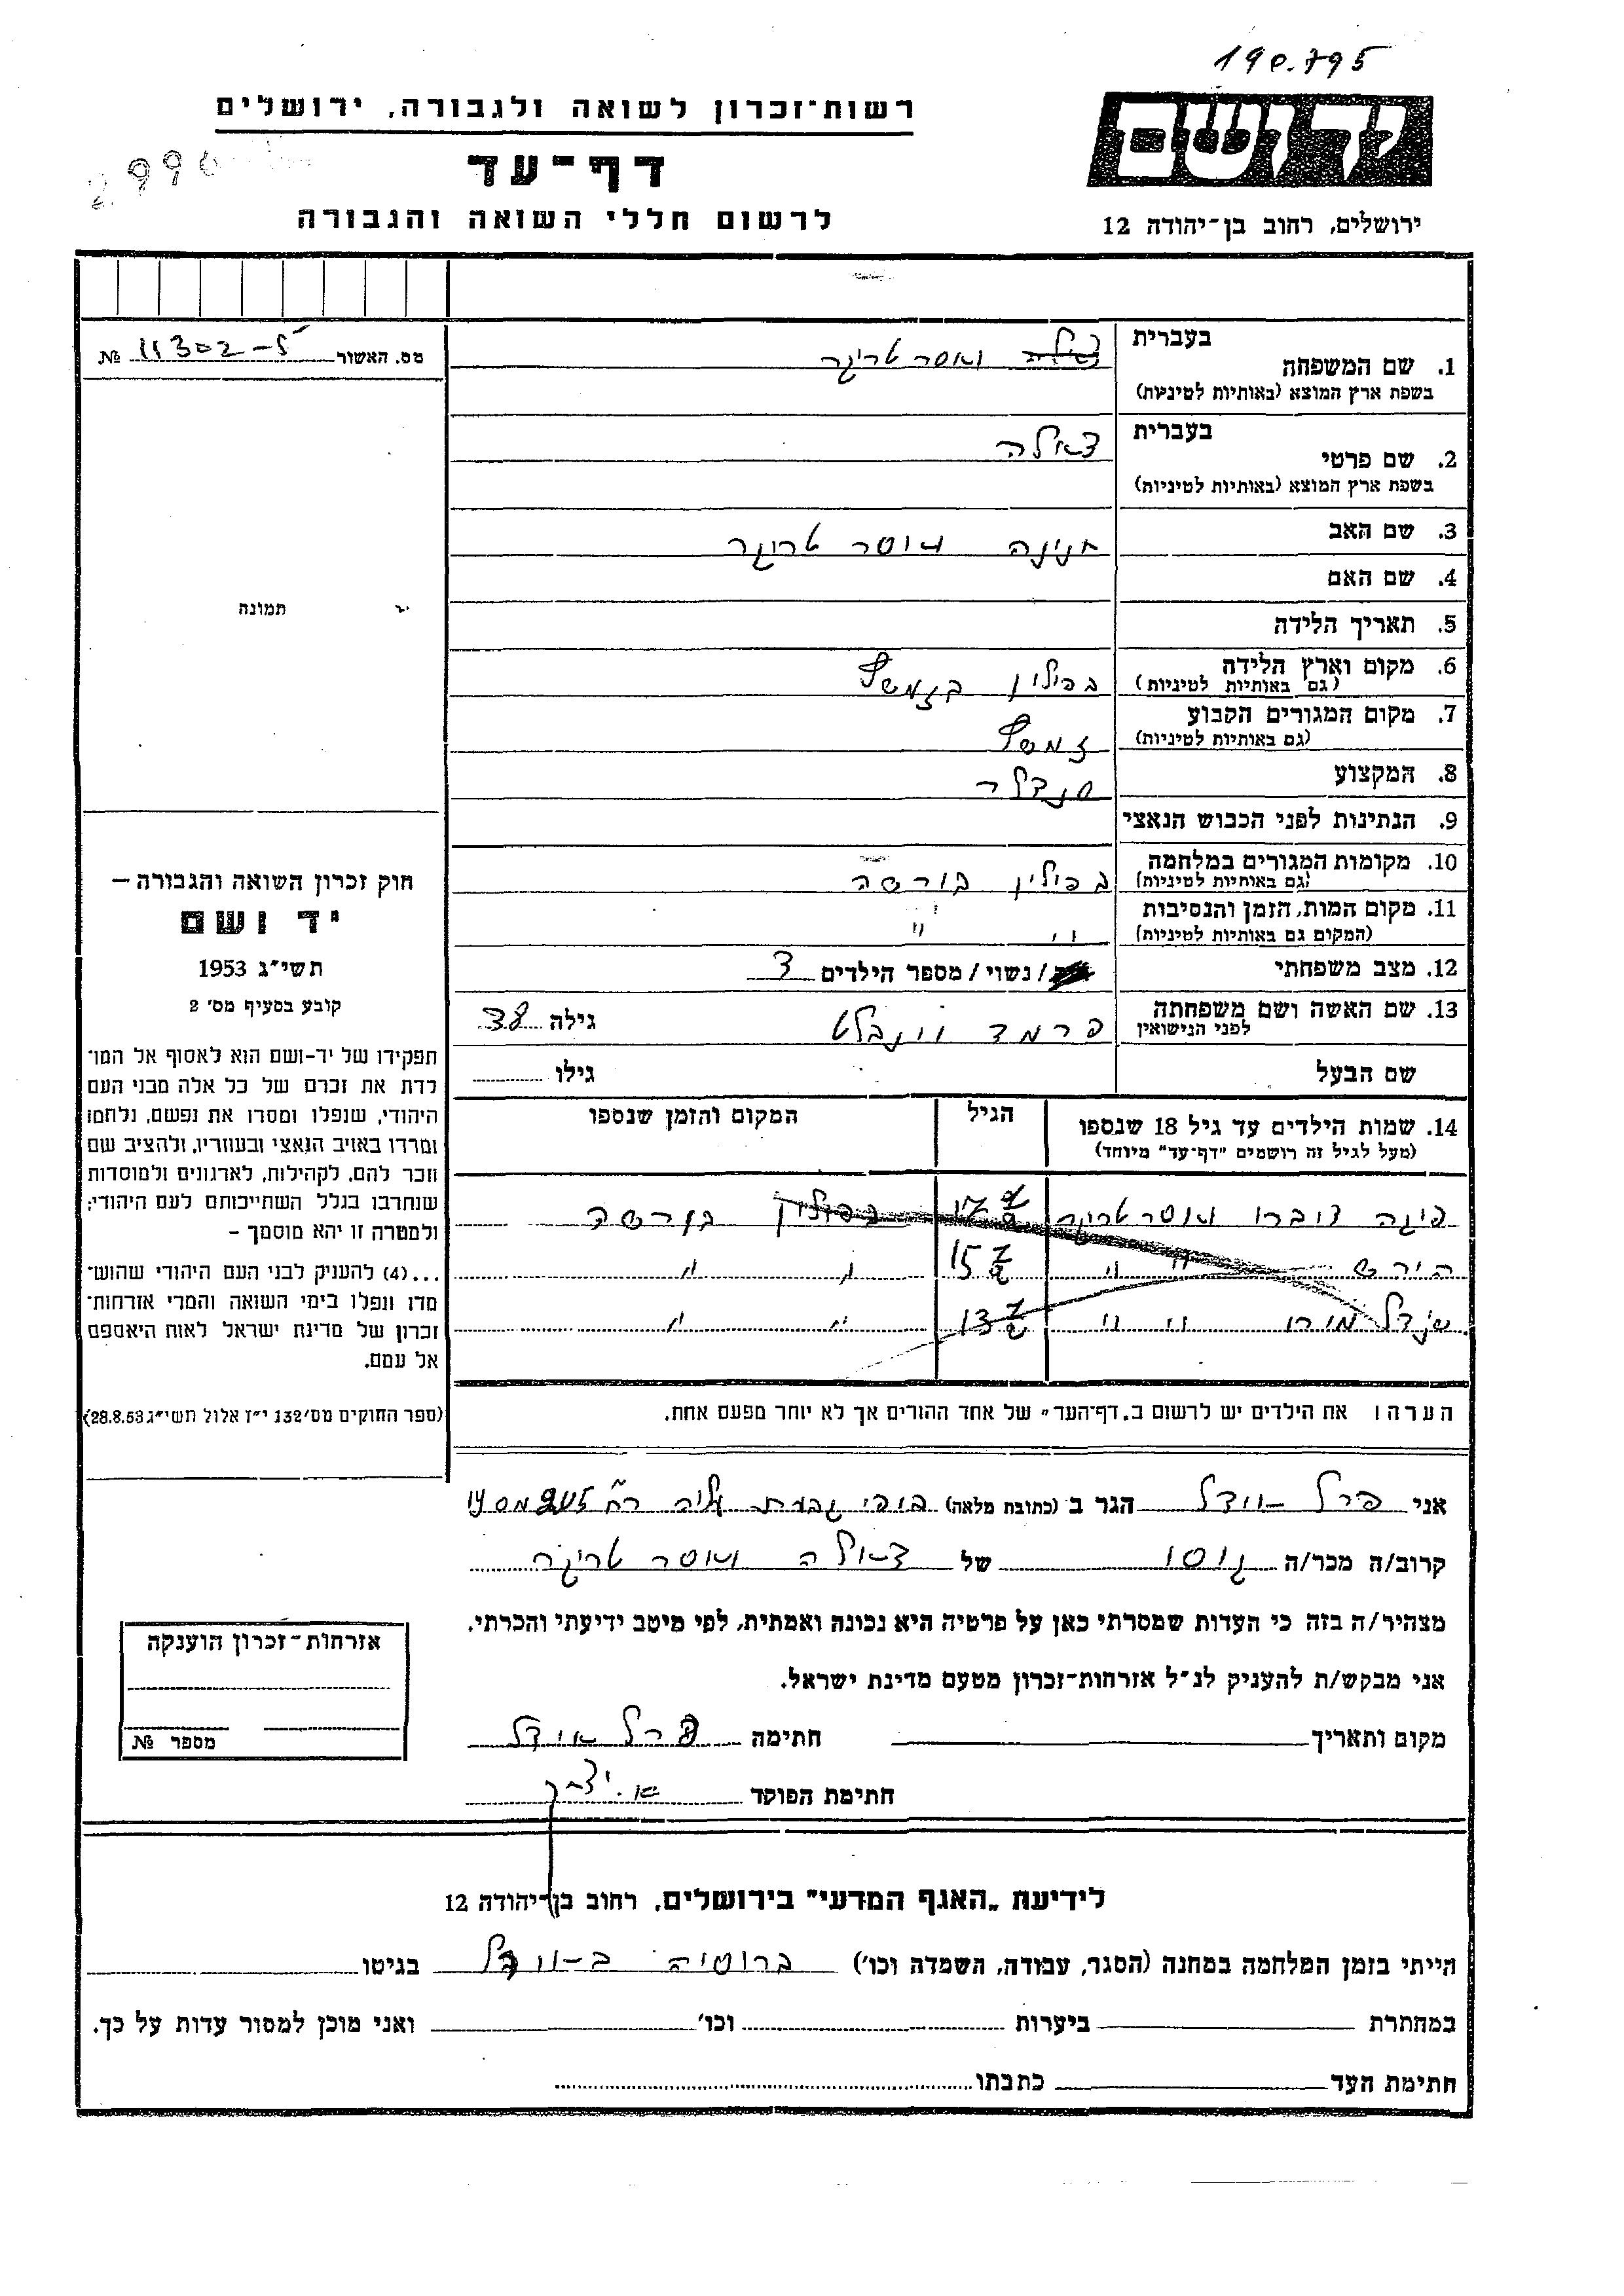 190.795
רשות־זכרון לשואה ולגבורה, ירושלים
יד ושם
דף־עד
לרשום חללי השואה והגבורה
ירושלים, רחוב בן־יהודה 12
מס. האשור 11302-5 №
בעברית
1. שם המשפחה ואסר טריגר
בשפת ארץ המוצא (באותיות לטיניות)
בעברית
2. שם פרטי
בשפת ארץ המוצא (באותיות לטיניות)
3. שם האב חנינה ואסר טריגר
4. שם האם
5. תאריך הלידה
6. מקום וארץ הלידה בפולין
(גם באותיות לטיניות)
7. מקום המגורים הקבוע
(גם באותיות לטיניות)
8. המקצוע סנדלר
9. הנתינות לפני הכבוש הנאצי
10. מקומות המגורים במלחמה בפולין בורשה
(גם באותיות לטיניות)
11. מקום המות, הזמן והנסיבות " "
(המקום גם באותיות לטיניות)
12. מצב משפחתי /נשוי/ מספר הילדים 3
13. שם האשה ושם משפחתה גילה 38
לפני הנישואין
שם הבעל גילו
14. שמות הילדים עד גיל 18 שנספו הגיל המקום והזמן שנספו
(מעל לגיל זה רושמים "דף־עד" מיוחד)
ואסר טריגר בפולין בורשה
הירש " " 15 " "
" " 13 " "
הערה ! את הילדים יש לרשום ב„דף־העד" של אחד ההורים אך לא יוחר מפעם אחת.
תמונה
חוק זכרון השואה והגבורה –
יד ושם
תשי״ג 1953
קובע בסעיף מס׳ 2
תפקידו של יד־ושם הוא לאסוף אל המו־
לדת את זכרם של כל אלה מבני העם
היהודי, שנפלו ומסרו את נפשם, נלחמו
ומרדו באויב הנאצי ובעוזריו, ולהציב שם
וזכר להם, לקהילות, לארגונים ולמוסדות
שנחרבו בגלל השתייכותם לעם היהודי;
ולמטרה זו יהא מוסמך –
...(4) להעניק לבני העם היהודי שהוש־
מדו ונפלו בימי השואה והמרי אזרחות־
זכרון של מדינת ישראל לאות היאספם
אל עמם.
(ספר החוקים מס׳ 132 י״ז אלול תשי״ג 28.8.53)
אני פרל הגר ב (כתובת מלאה) גבעת עליה
קרוב/ה מכר/ה גיסו של ואסר טריגר
מצהיר/ה בזה כי העדות שמסרתי כאן על פרטיה היא נכונה ואמתית, לפי מיטב ידיעתי והכרתי.
אני מבקש/ת להעניק לנ״ל אזרחות־זכרון מטעם מדינת ישראל.
מקום ותאריך חתימה פרל אידל
חתימת הפוקד
אזרחות־זכרון הוענקה
מספר №
לידיעת „האגף המדעי" בירושלים, רחוב בן־יהודה 12
הייתי בזמן המלחמה במחנה (הסגר, עבודה, השמדה וכו׳) ברוסיה בגיטו
במחתרת ביערות וכו׳ ואני מוכן למסור עדות על כך.
חתימת העד כתבתו